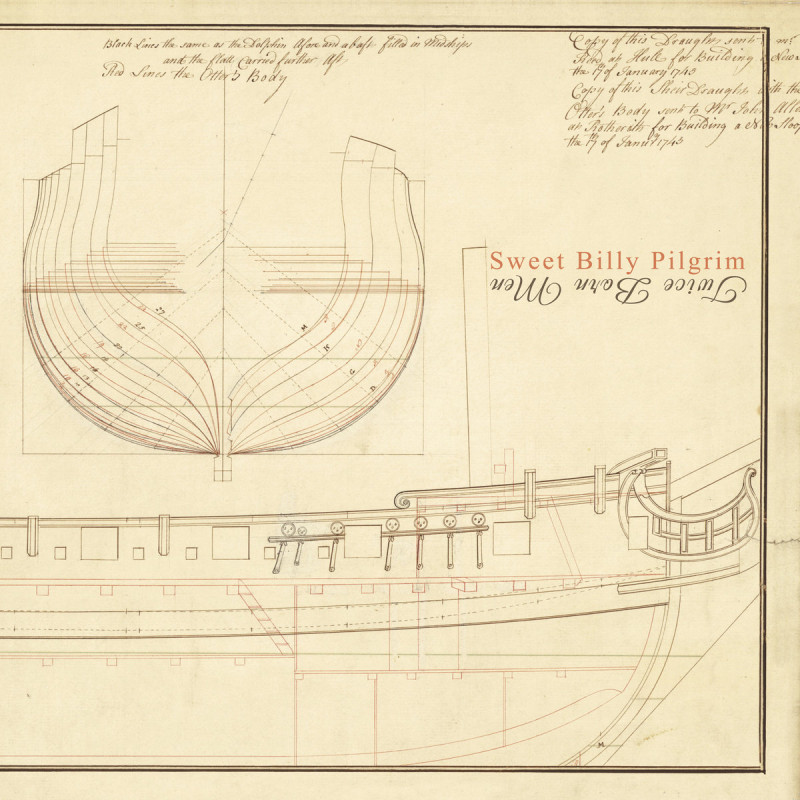 Black Lines the same as the Dolphin Afore and abaft filled in Midships
and the flatt Carried further Aft
Red Lines the Otter's Body
Copy of this Draught sent
at Hull for Building
the of January 1743
Copy of this Sheir Draught with the
Otter's Body sent to Mr John Alle
at Rotherith for Building a Sloop
the of Janury 1743
Sweet Billy Pilgrim
Twice Born Men
27
M
H
G
D
M